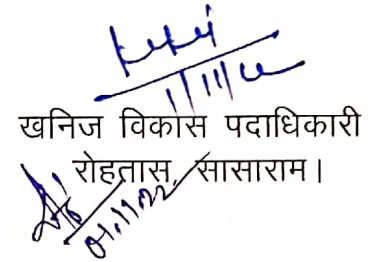 खनिज विकास पदाधिकारी
रोहतास, सासाराम।
01.11.22